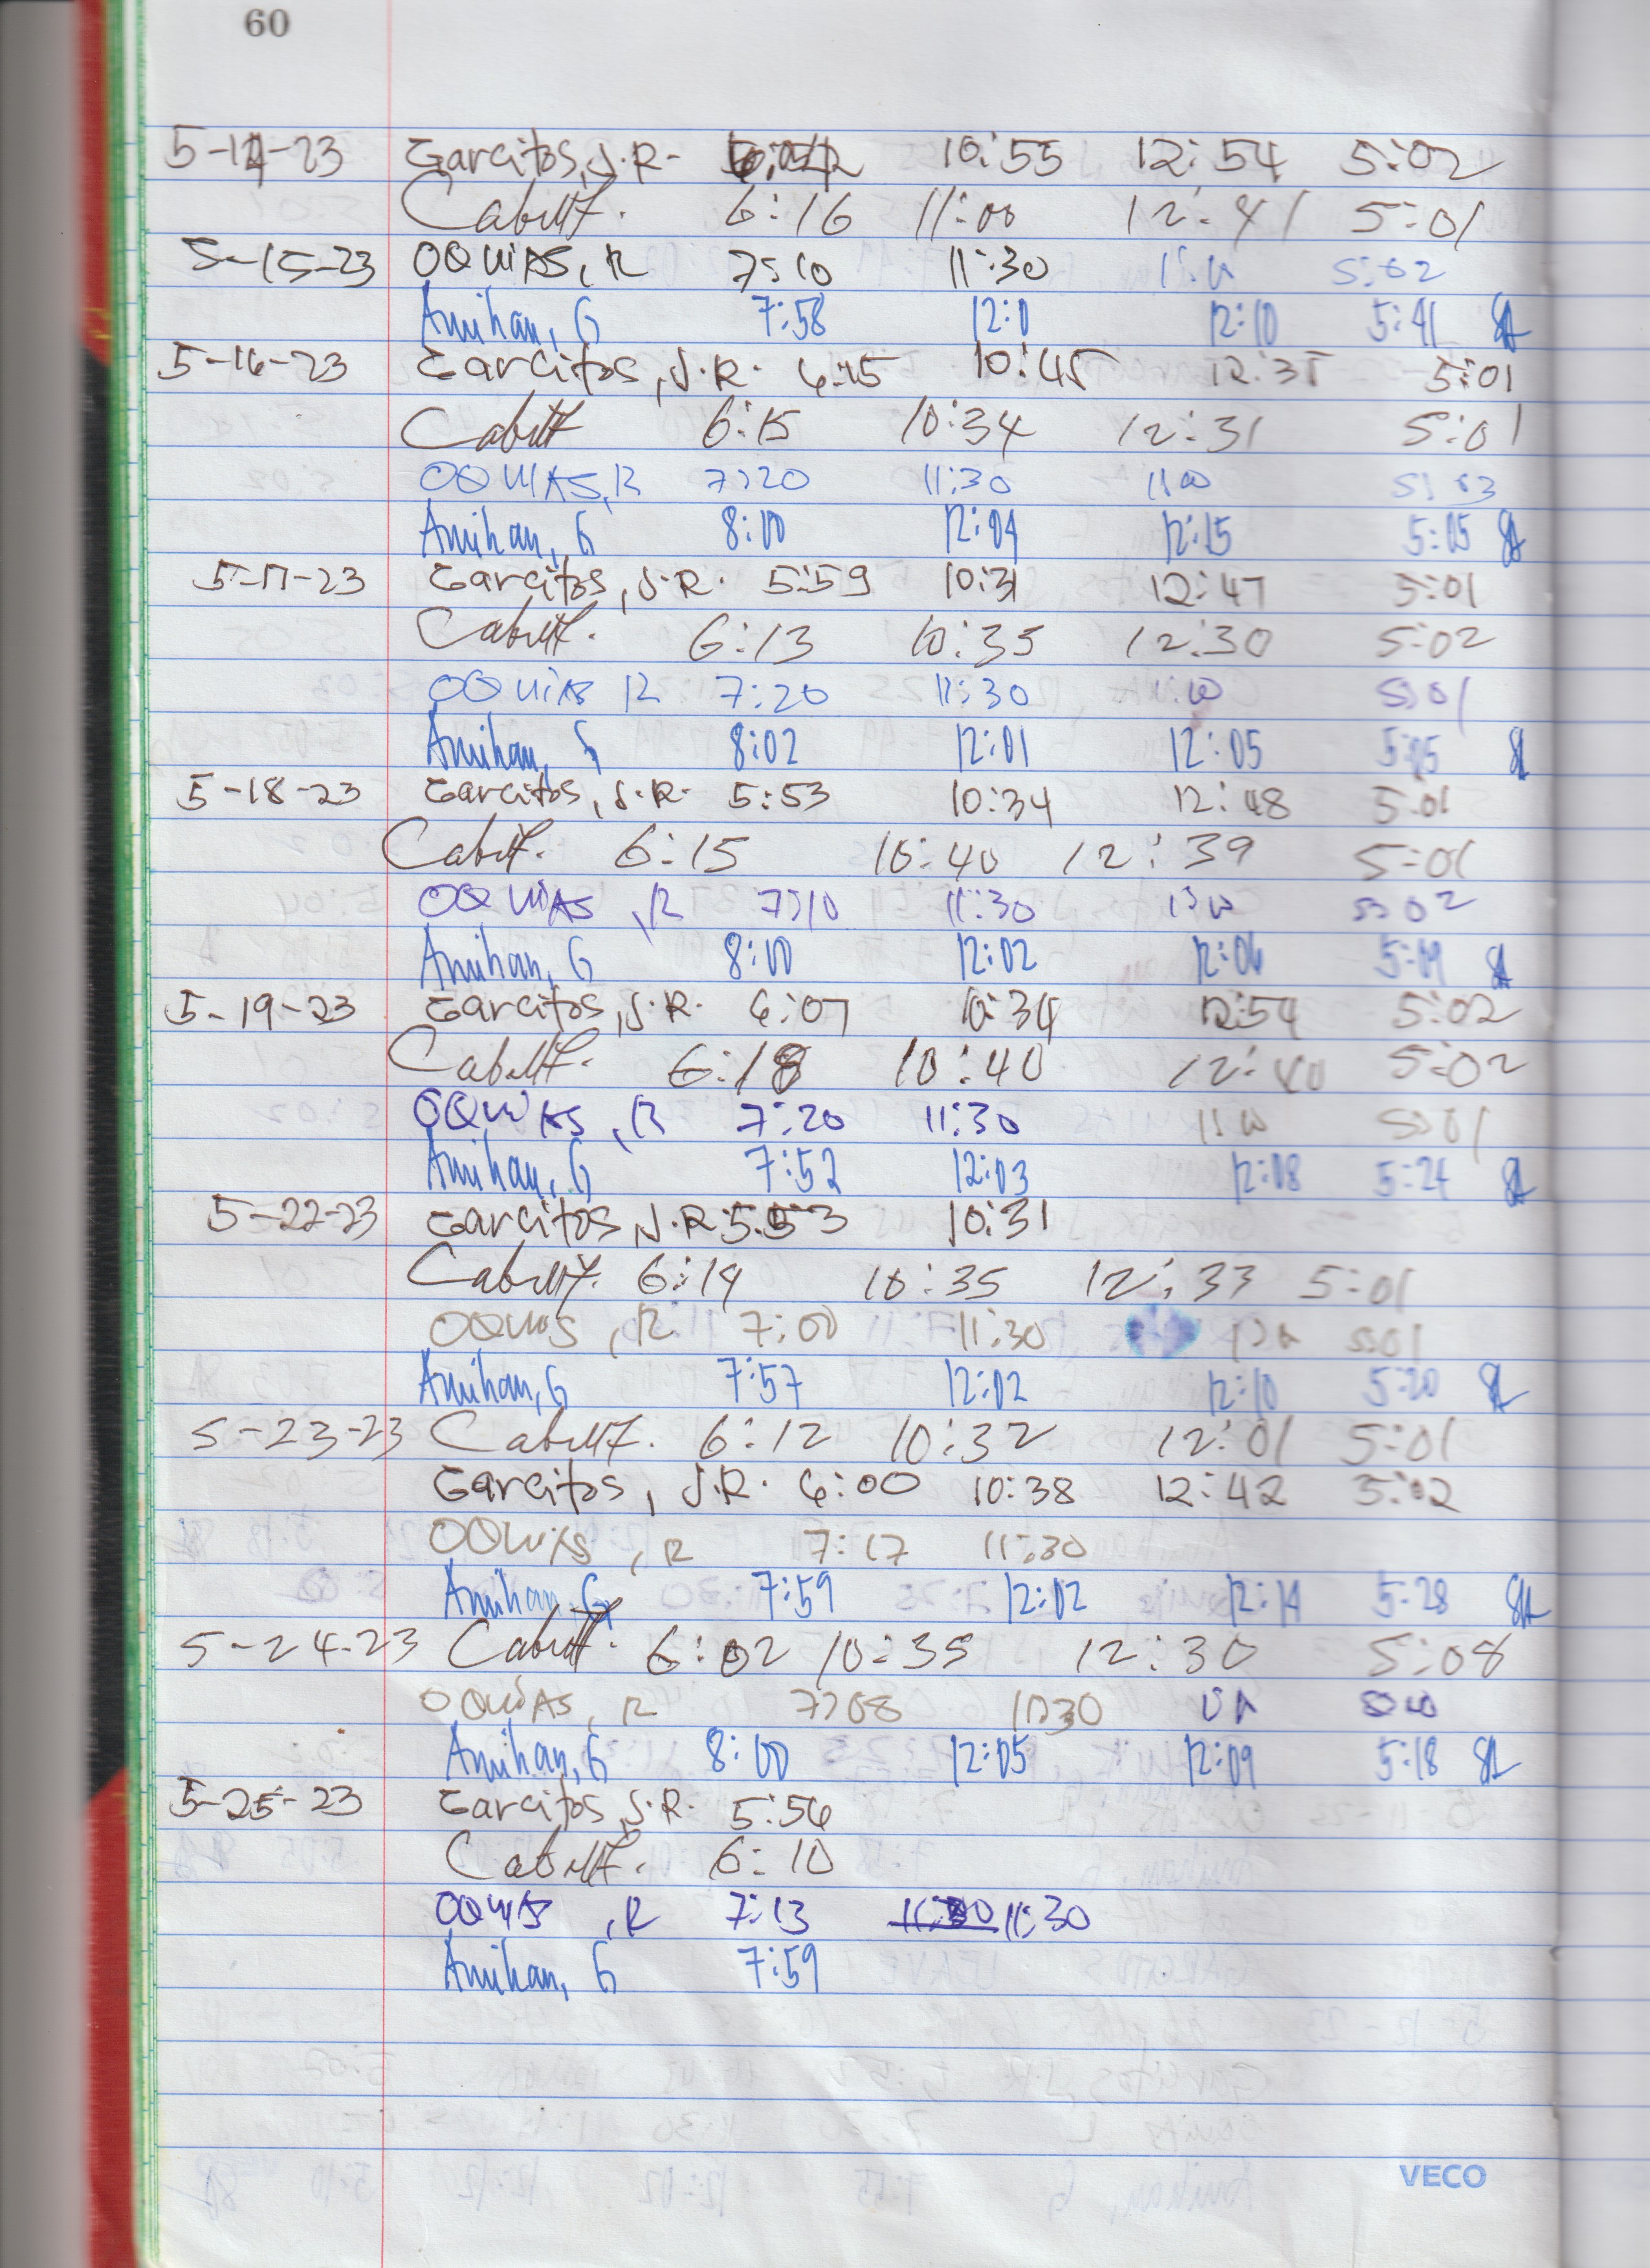 60
5-14-23 Garcitos, J.R. 10:55 12:54 5:02
Cabilt. 6:16 11:00 12:41 5:01
5-15-23 OQUIAS, R 7:10 11:30 5:02
Amihan, G 7:58 12:0 12:10 5:41
5-16-23 Garcitos, J.R. 6:15 10:45 12:35 5:01
6:15 10:34 12:31 5:01
OQUIAS, R 7:20 11:30 1:00 5:03
Amihan, G 8:00 12:04 12:15 5:05
5-17-23 Garcitos, J.R. 5:59 10:31 12:47 5:01
6:13 10:35 12:30 5:02
OQUIAS R 7:20 11:30 1:00 5:01
Amihan, G 8:02 12:01 12:05 5:05
5-18-23 Garcitos, J.R. 5:53 10:34 12:48 5:01
6:15 10:40 12:39 5:01
OQUIAS, R 7:10 11:30 1:00 5:02
Amihan, G 8:00 12:02 12:06 5:09
5-19-23 Garcitos, J.R. 6:07 10:34 12:54 5:02
6:18 10:40 12:40 5:02
OQUIAS, R 7:20 11:30 1:00 5:01
Amihan, G 7:52 12:03 12:08 5:24
5-22-23 Garcitos, J.R 5:53 10:31
6:14 10:35 12:33 5:01
OQUIAS, R 7:00 11:30 5:01
Amihan, G 7:57 12:02 12:10 5:20
5-23-23 6:12 10:32 12:01 5:01
Garcitos, J.R. 6:00 10:38 12:42 5:02
OQUIAS, R 7:17 11:30
Amihan, G 7:59 12:02 12:14 5:28
5-24-23 6:02 10:35 12:30 5:08
OQUIAS, R 7:08 11:30
Amihan, G 8:00 12:05 12:09 5:18
5-25-23 Garcitos, J.R. 5:56
6:10
OQUIAS, R 7:13 11:30
Amihan, G 7:59
VECO